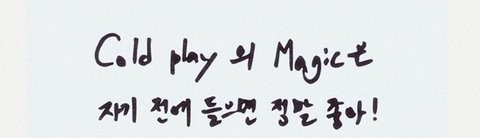 Cold play 의 Magic도
자기 전에 들으면 정말 좋아!